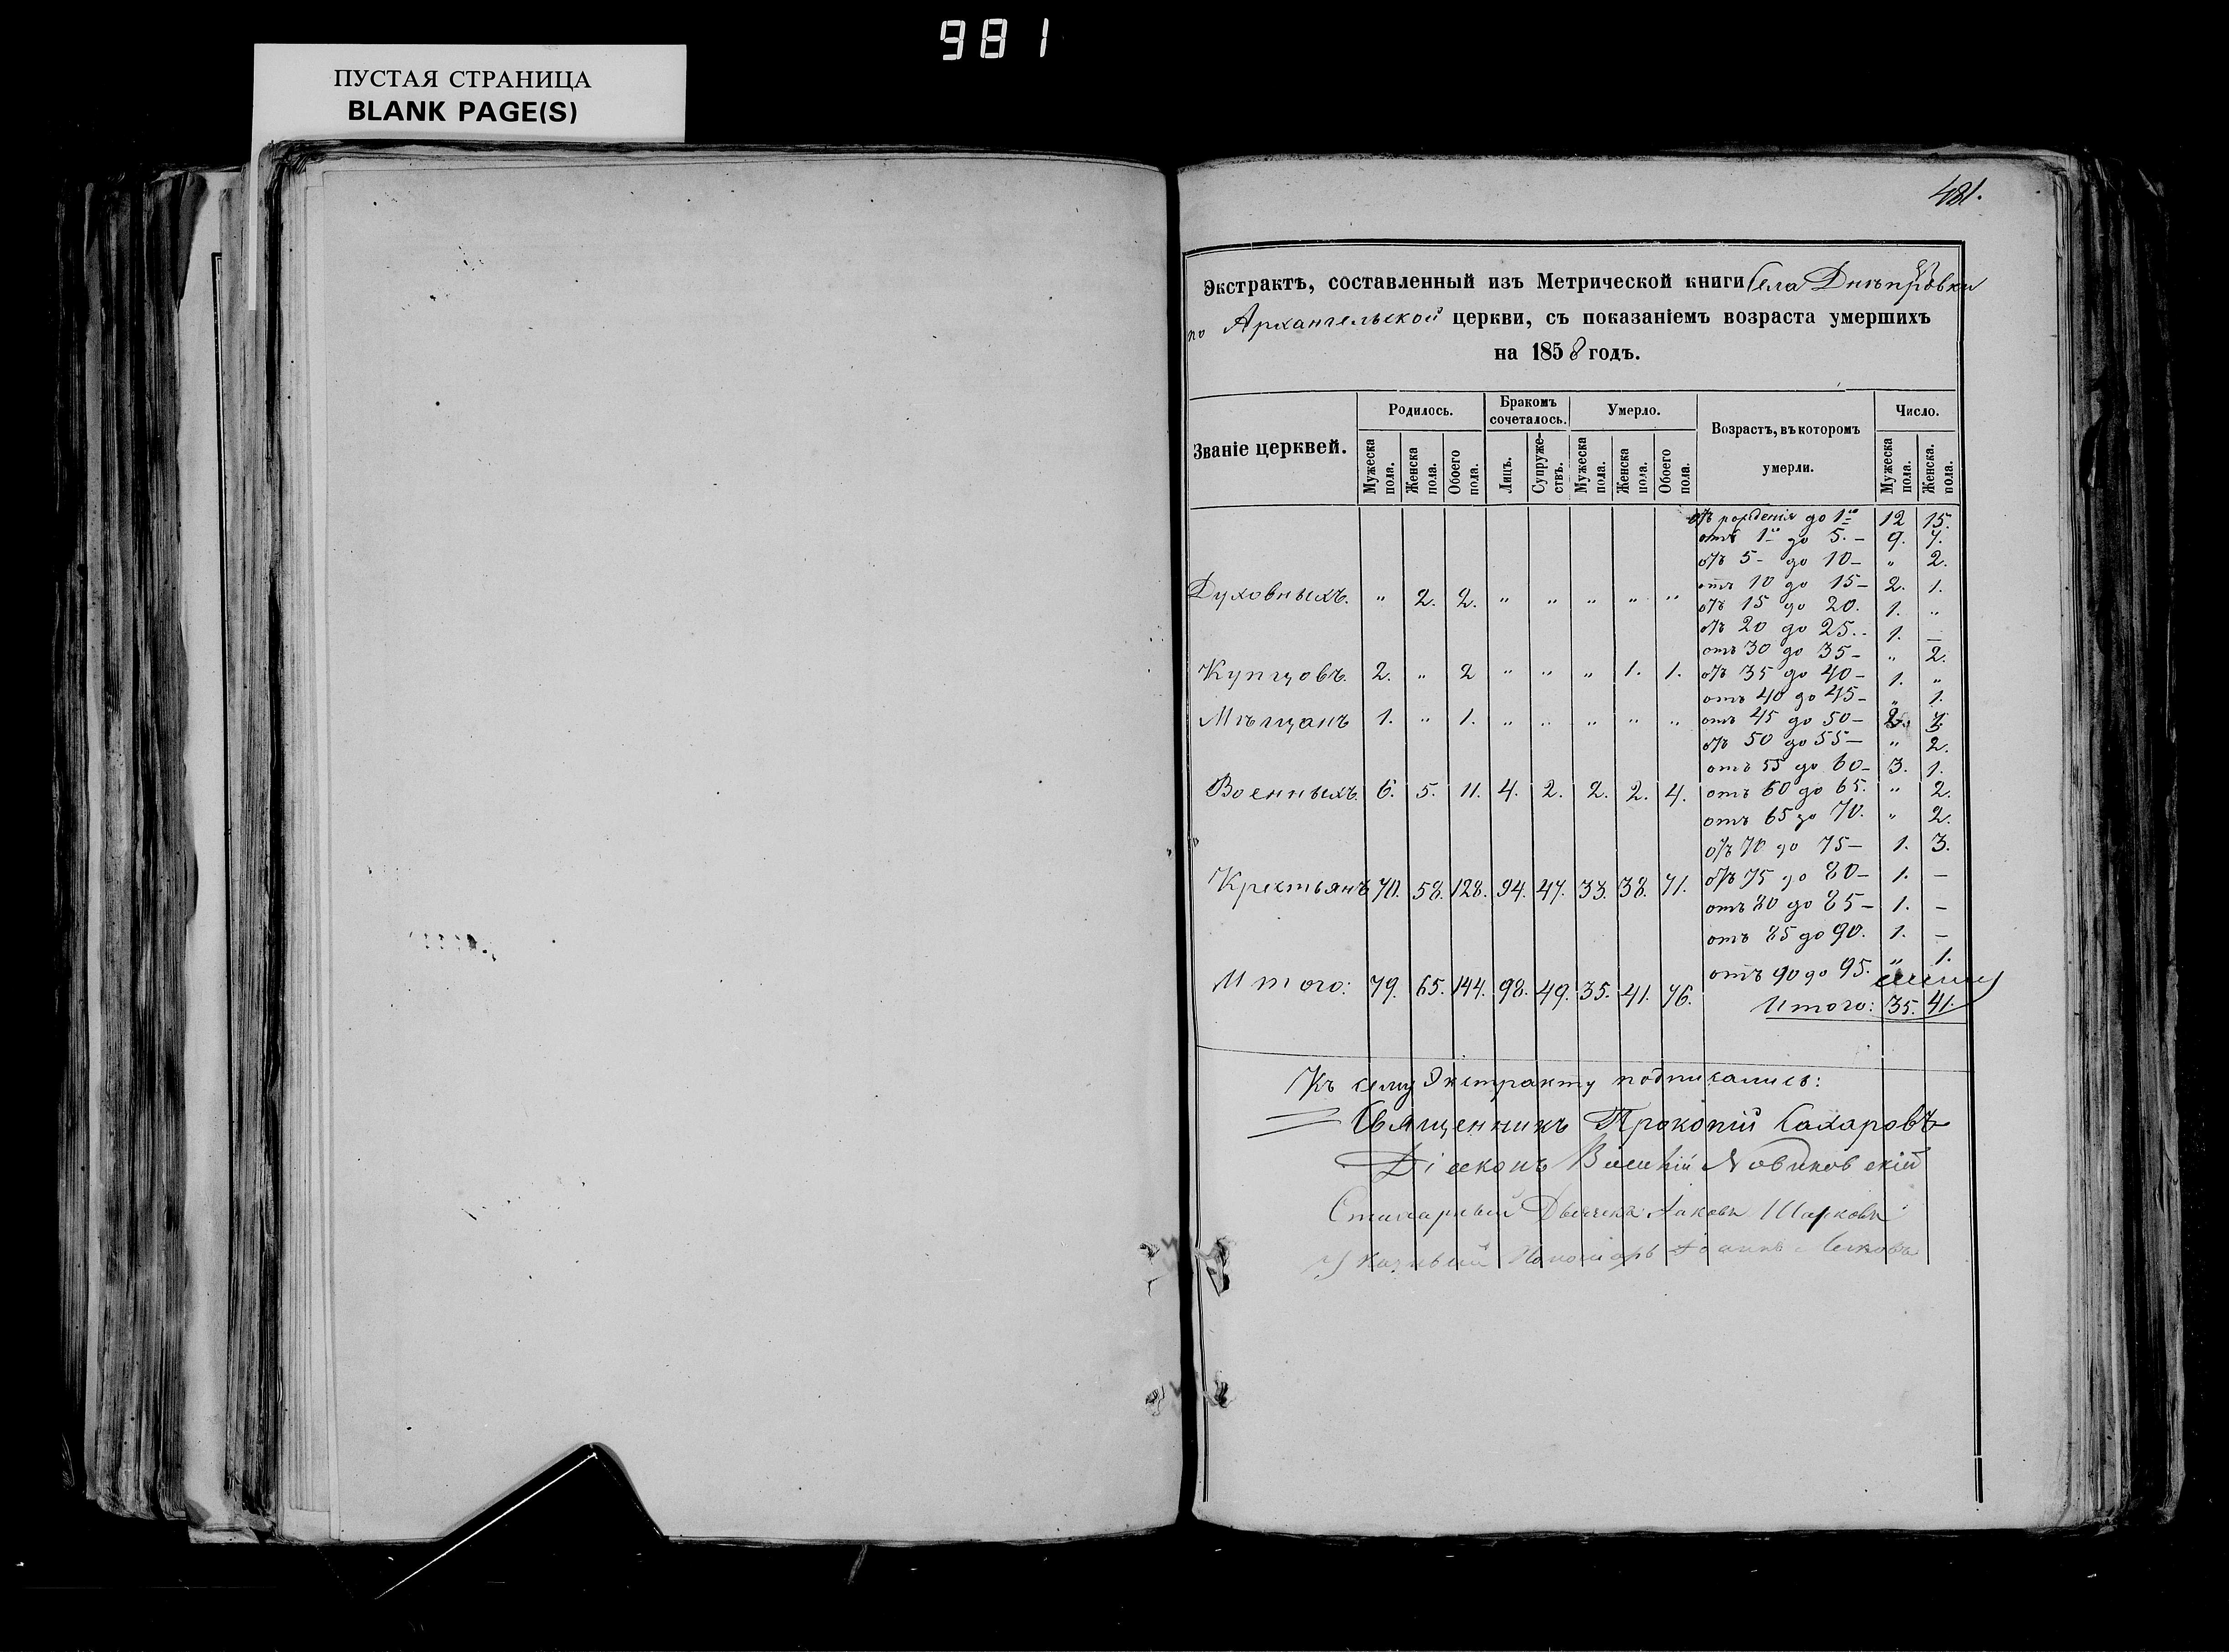 981
ПУСТАЯ СТРАНИЦА
BLANK PAGE(S)
481.
Экстрактъ, составленный изъ Метрической книги Села Днѣпровки
по Архангельской церкви, съ показаніемъ возраста умершихъ
на 1858 годъ.
Званіе церквей. Родилось. Бракомъ сочеталось. Умерло. Возрастъ, въ которомъ умерли. Число.
Мужеска пола. Женска пола. Обоего пола. Лицъ. Супружествъ. Мужеска пола. Женска пола. Обоего пола. Мужеска пола. Женска. пола.
отъ рожденія до 1го 12 15.
отъ 1го до 5. – 9. 7.
отъ 5 – до 10 – " 2.
отъ 10 до 15 – 2. 1.
Духовныхъ. " 2. 2. " " " " "
отъ 15 до 20. 1. "
отъ 20 до 25.. 1. –
отъ 30 до 35 – " 2.
Купцовъ. 2. " 2 " " " 1. 1.
отъ 35 до 40 – 1. "
отъ 40 до 45 – " 1.
Мѣщанъ 1. " 1. " " " " "
отъ 45 до 50 –
отъ 50 до 55 – " 2.
отъ 55 до 60 – 3. 1.
Военныхъ. 6. 5. 11. 4. 2. 2. 2. 4.
отъ 60 до 65. " 2.
отъ 65 до 70. " 2.
отъ 70 до 75 – 1. 3.
Крестьянъ 70. 58. 128. 94. 47. 33. 38. 71.
отъ 75 до 80 – 1. –
отъ 80 до 85 – 1. –
отъ 85 до 90. 1. –
отъ 90 до 95. " 1.
Итого: 79. 65. 144. 98. 49. 35. 41. 76.
Итого: 35. 41.
Къ сему Экстракту подписались:
Священникъ Прокопій Сахаровъ
Діаконъ Василій Новиковскій
Стихарный Дьячекъ Іаковъ Шарковъ
Указный Пономарь Іоаннъ